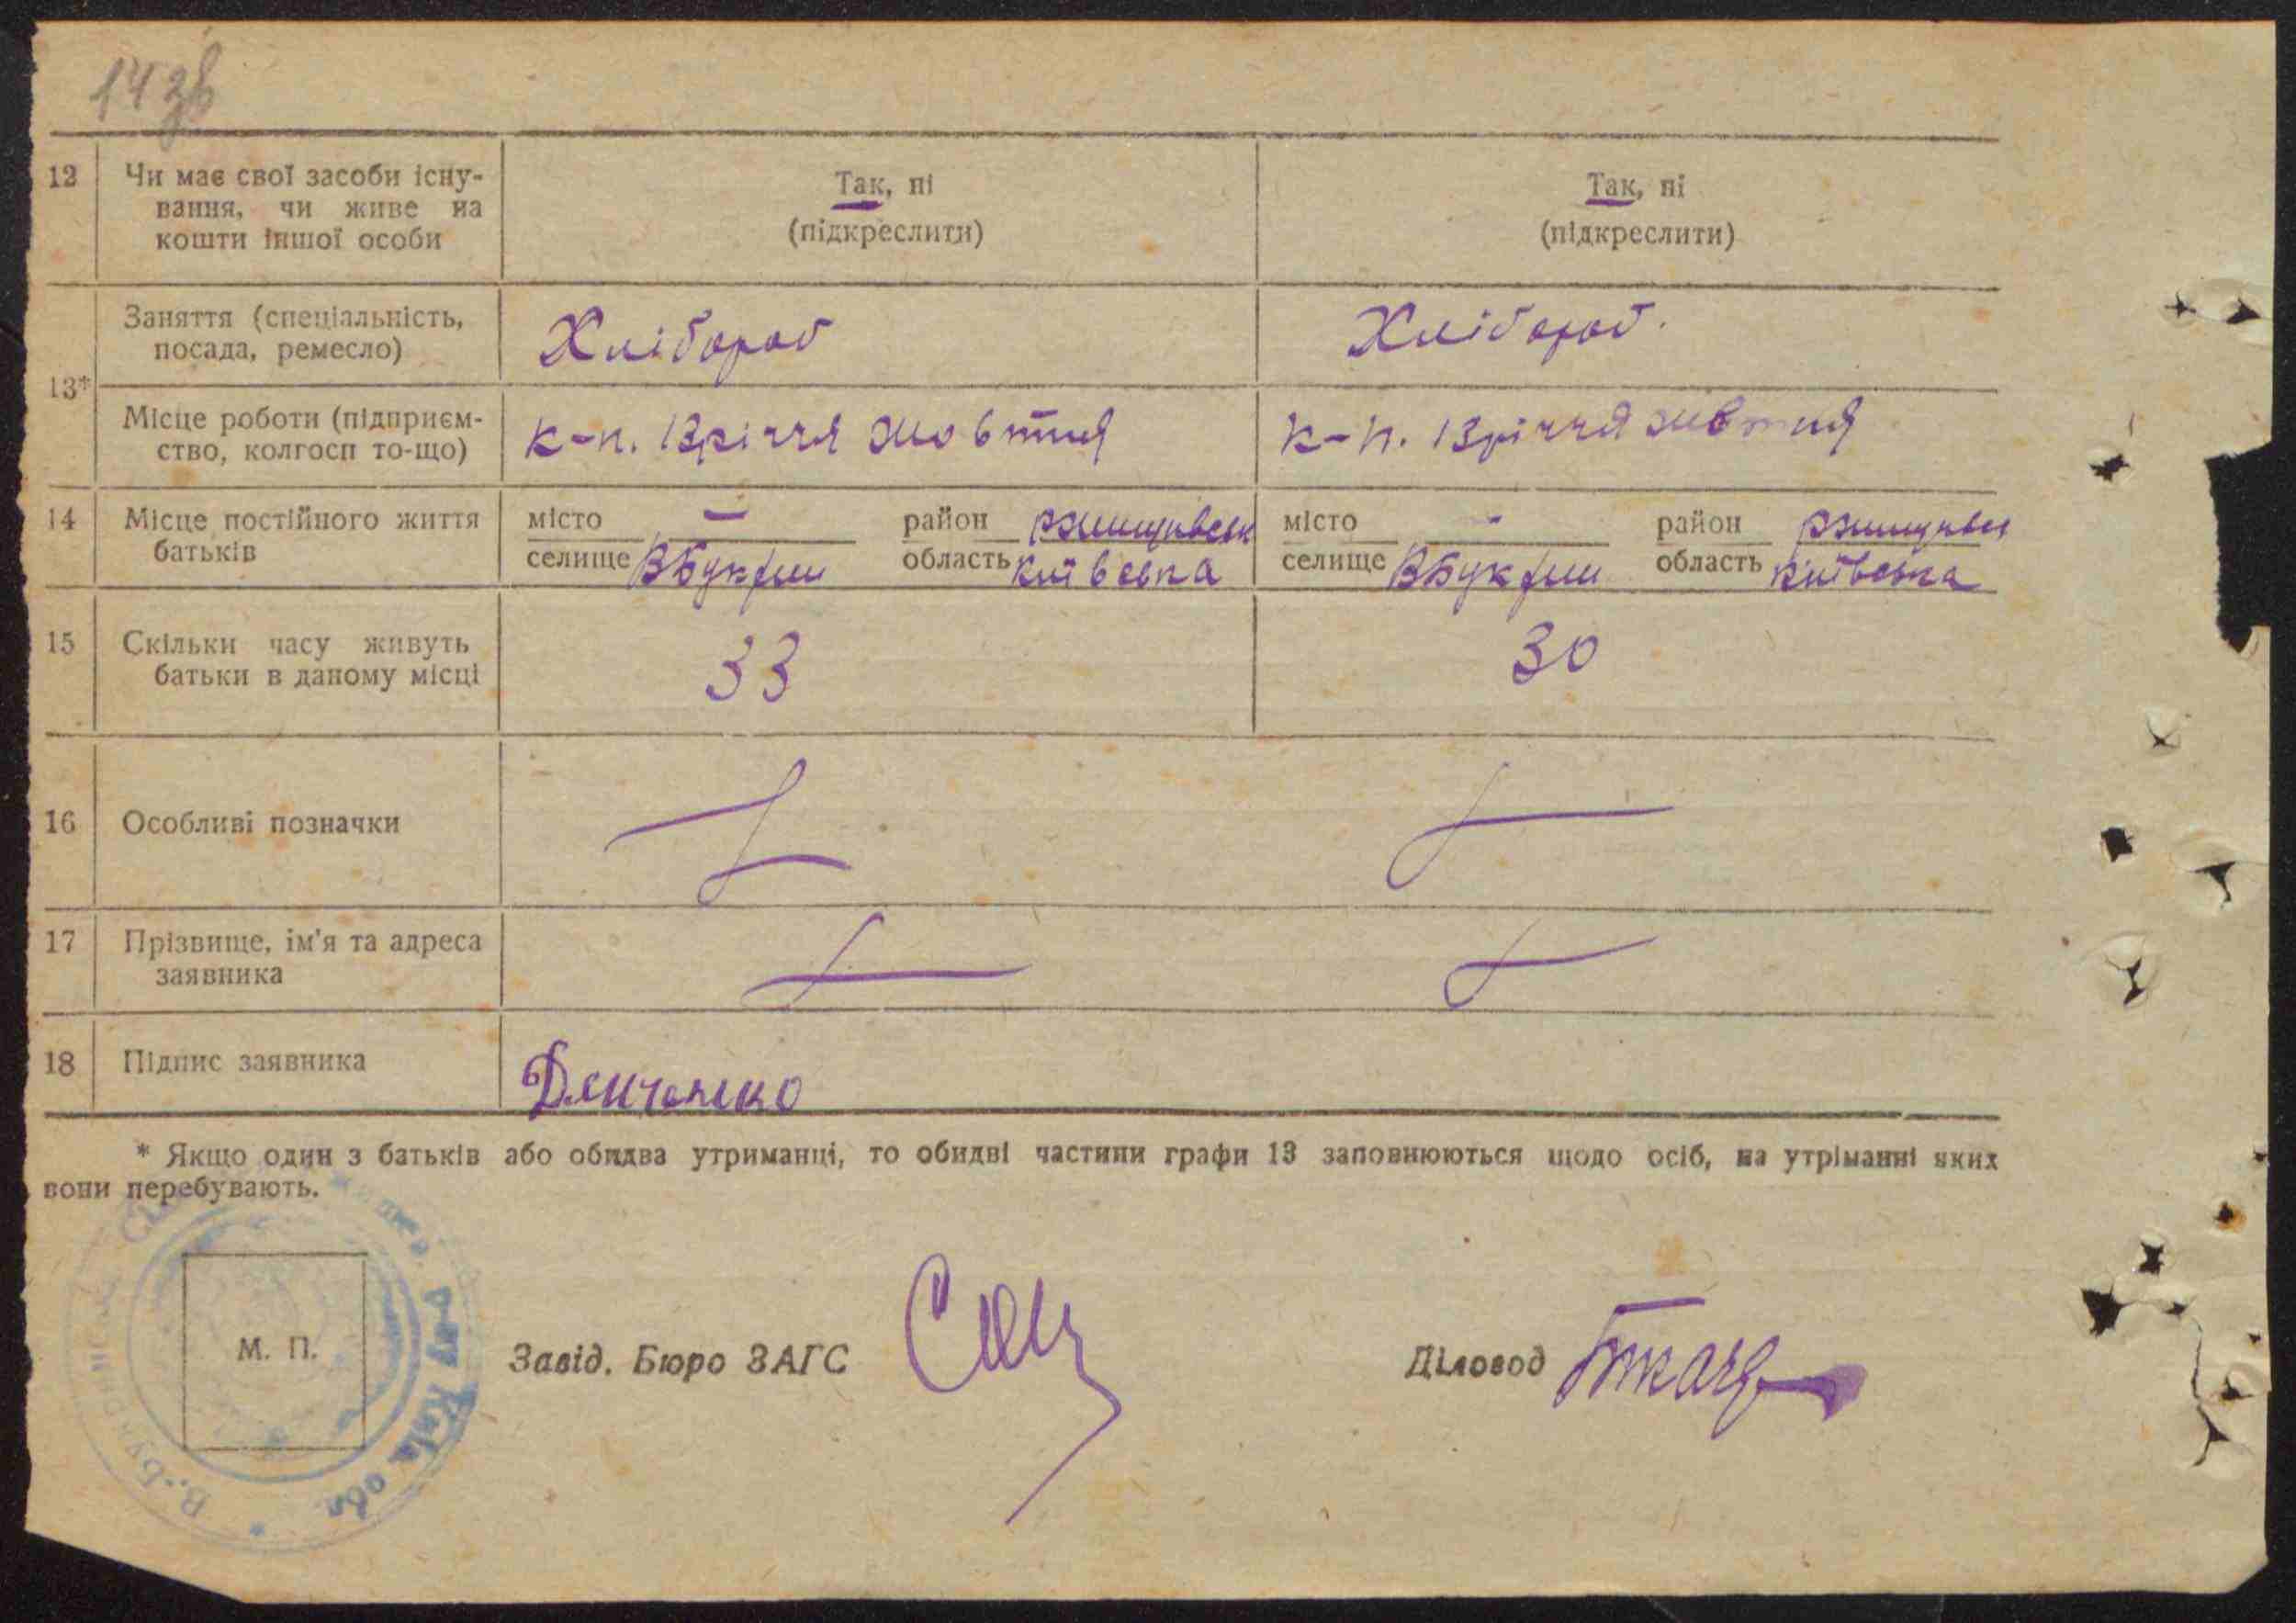 12 Чи має свої засоби існу-
вання, чи живе на
кошти іншої особи
Так, ні
(підкреслити)
Так, ні
(підкреслити)
13*
Заняття (спеціальність,
посада, ремесло)
Хлібороб
Хлібороб.
Місце роботи (підприєм-
ство, колгосп то-що)
к-п. 13річчя жовтня
к-п. 13річчя жовтня
14 Місце постійного життя
батьків
місто – район Ржищівськ
селище ВБукрин область Київська
місто - район Ржищівсь
селище ВБукрин область Київська
15 Скільки часу живуть
батьки в даному місці
33
30
16 Особливі позначки
17 Прізвище, ім'я та адреса
заявника
18 Підпис заявника
Демченко
* Якщо один з батьків або обидва утриманці, то обидві частини графи 13 заповнюються щодо осіб, на утріманні яких
вони перебувають.
М. П.
Завід. Бюро ЗАГС
Діловод Ткач
р-ну Київ. обл